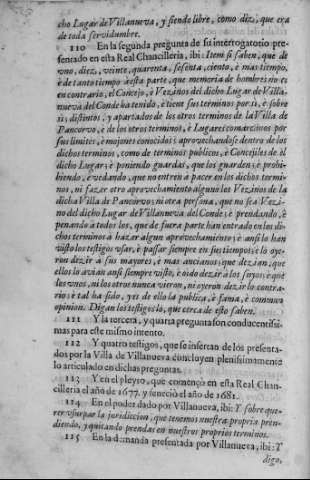 cho Lugar de Villanueva, y siendo libre, como diz, que era
de toda servidumbre.
110 En la segunda pregunta de su interrogatorio pre-
sentado en esta Real Chancilleria, ibi: Item si saben, que de
vno, diez, veinte, quarenta, sesenta, ciento, è mas tiempo,
è de tanto tiempo à esta parte, que memoria de hombres no es
en contrario, el Concejo, è Vezinos del dicho Lugar de Villa-
nueva del Conde ha tenido, è tient sus terminos por si, è sobre
si; distintos, y apartados de los otros terminos de la Villa de
Pancorvo, è de los otros terminos, è Lugares comarcanos por
sus limites, è mojones conocidos: aprovechandose dentro de los
dichos terminos, como de terminos publicos, è Concejiles de el
dicho Lugar; è poniendo guardas, que los guarden; è prohi-
biendo, è vedando, que no entren à pacer en los dichos termi-
nos, ni fazer otro aprovechamiento alguno los Vezinos de la
dicha Villa de Pancorvo; ni otra persona, que no sea Vezi-
no del dicho Lugar de Villanueva del Conde; è prendando, è
penando à todos los, que de fuera parte han entrado en los di-
chos terminos à hazer algun aprovechamiento; è ansi lo han
visto los testigos vsar, è passar siempre en sus tiempos; è lo oye-
ron dezir à sus mayores, è mas ancianos; que dezian, que
ellos lo avian ansi siempre visto, è oido dezir à los suyos; è que
los vnos, ni los otros nunca vieron, ni oyeron dezir lo contra-
rio: è tal ha sido, y es de ello la publica, è fama, è comun
opinion. Digan los testigos lo, que cerca de esto saben.
111 Y la tercera, y quarta pregunta son conducentissi-
mas para este mismo intento.
112 Y quatro testigos, que se insertan de los presenta-
dos por la Villa de Villanueva concluyen plenissimamente
lo articulado en dichas preguntas.
113 Y en el pleyto, que començò en esta Real Chan-
cilleria el año de 1677. y feneciò el año de 1681.
114 En el poder dado por Villanueva, ibi: Y sobre que-
rer vsurpar la juridiccion, que tenemos nuestra propria, pren-
diendo, y quitando prendas en nuestros proprios terminos.
115 En la demanda presentada por Villanueva, ibi: Y
digo,